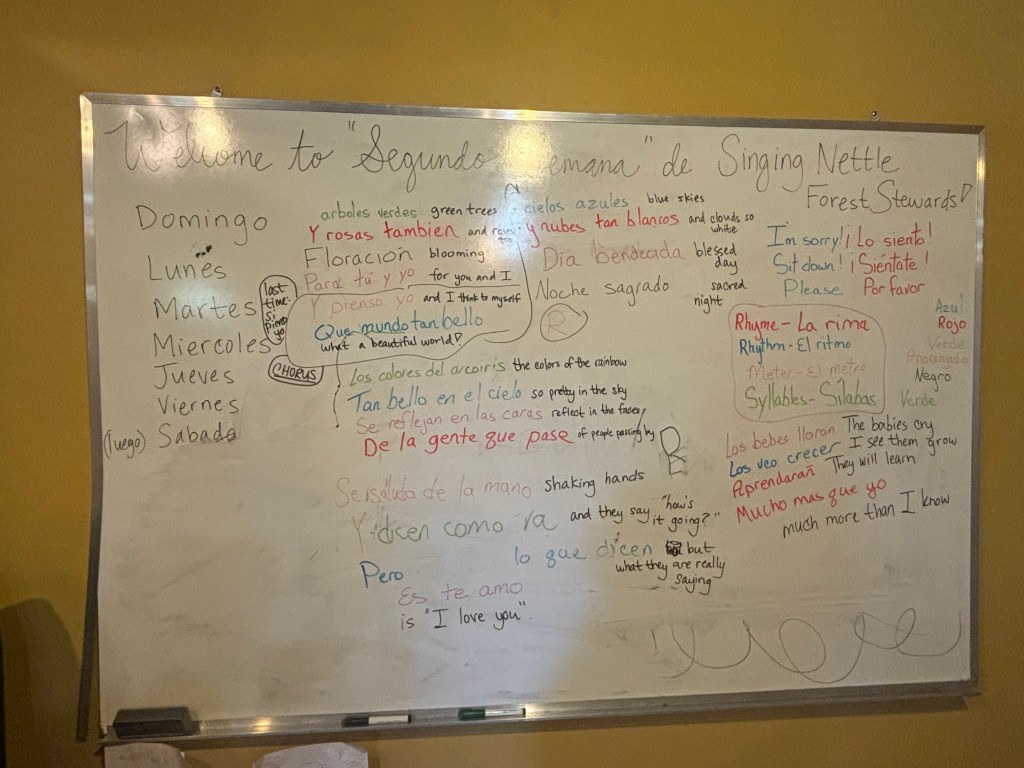 Welcome to "Segundo Semana" de Singing Nettle
Forest Stewards
Domingo
Lunes
Martes
Miercoles
Jueves
Viernes
(luego) Sabado
arboles verdes green trees
Y rosas tambien and too
Floración blooming
Para tú y yo for you and I
Y pienso yo and I think to myself
Que mundo tan bello
what a beautiful world
last
time:
si
pienso
yo
CHORUS
cielos azules blue skies
y nubes tan blancos and clouds so
white
Dia bendecada blessed
day
Noche sagrado sacred
night
R
Los colores del arcoiris the colors of the rainbow
Tan bello en el cielo so pretty in the sky
Se reflejan en las caras reflect in the faces
De la gente que pase of people passing by
Se saluda de la mano shaking hands
Y dicen como va and they say "how's
it going?"
Pero lo que dicen but
what they are really
saying
Es te amo
is "I love you".
I'm sorry! ¡Lo siento!
Sit down! ¡Siéntate!
Please Por favor
Rhyme - La rima
Rhythm - El ritmo
Meter - El metro
Syllables - Sílabas
Azul
Rojo
Verde
Anaranjado
Negro
Verde
Los bebes lloran The babies cry
Los veo crecer I see them grow
Aprendarañ They will learn
Mucho mas que yo
much more than I know